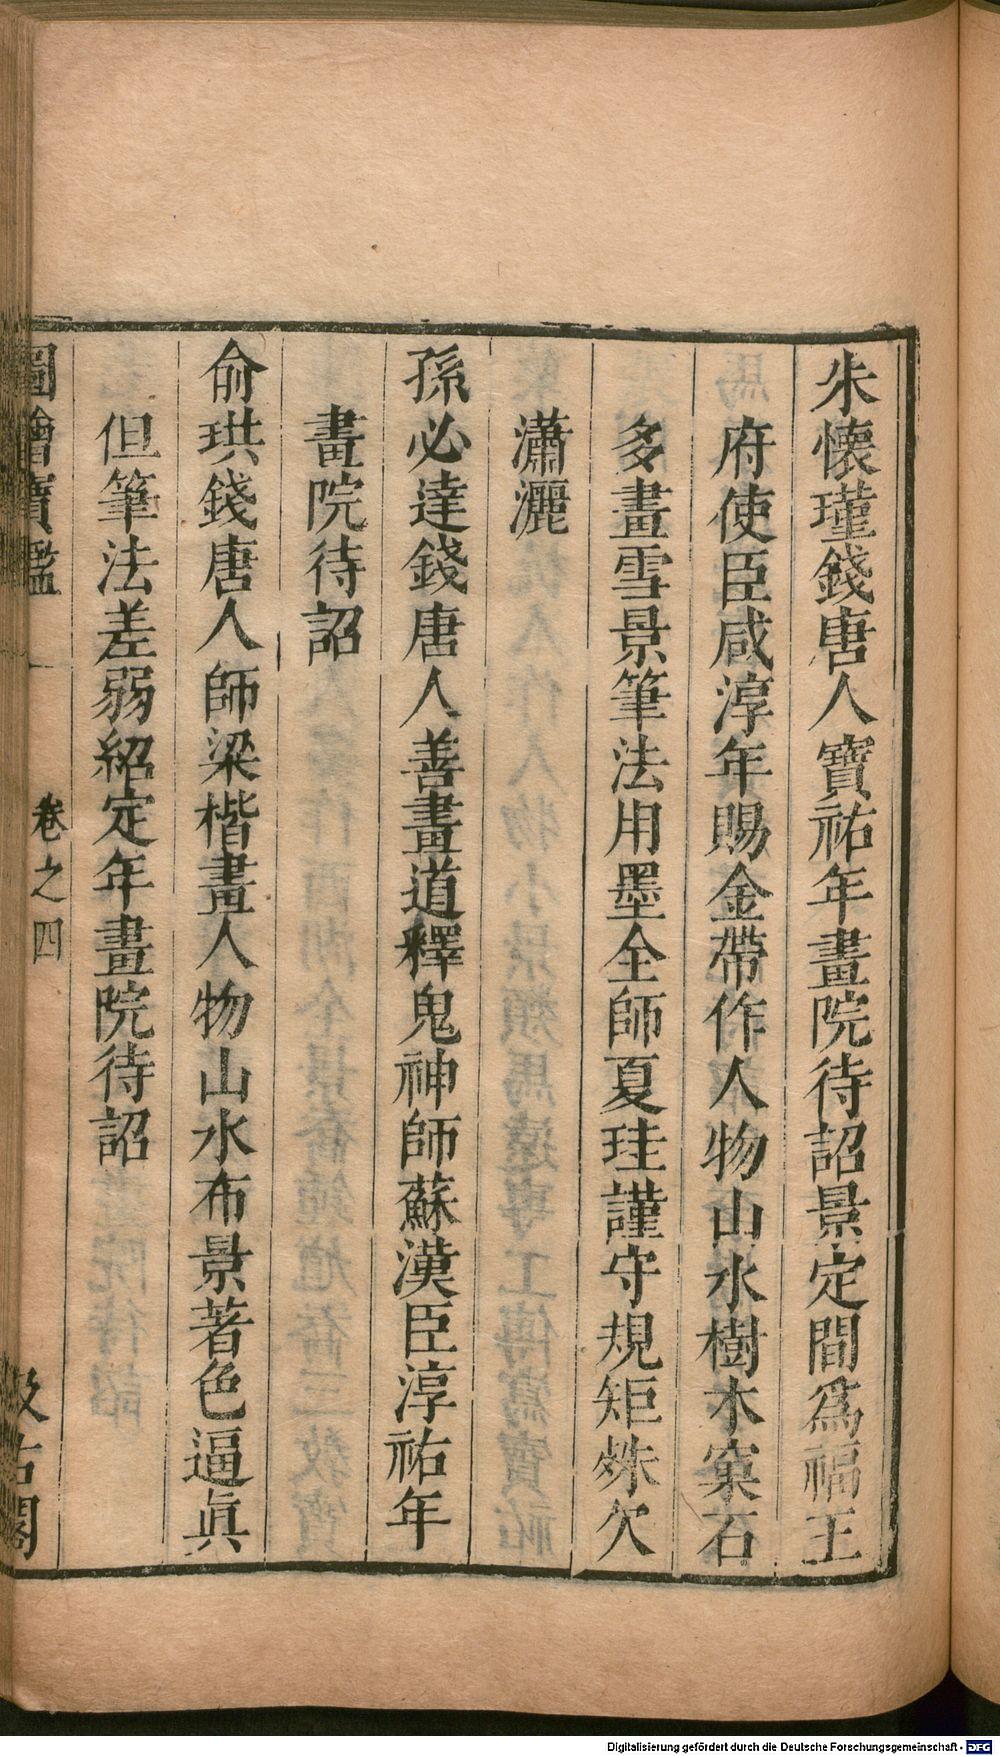 朱懷瑾錢唐人寶祐年畫院待詔景定間爲福王
府使臣咸淳年賜金帶作人物山水樹木窠石
多畫雪景筆法用墨全師夏珪謹守規矩殊欠
瀟灑
孫必達錢唐人善畫道釋鬼神師蘇漢臣淳祐年
畫院待詔
俞珙錢唐人師梁楷畫人物山水布景著色逼眞
但筆法差弱紹定年畫院待詔
圖繪寶鑑 卷之四 汲古閣
Digitalisierung gefördert durch die Deutsche Forschungsgemeinschaft - DFG